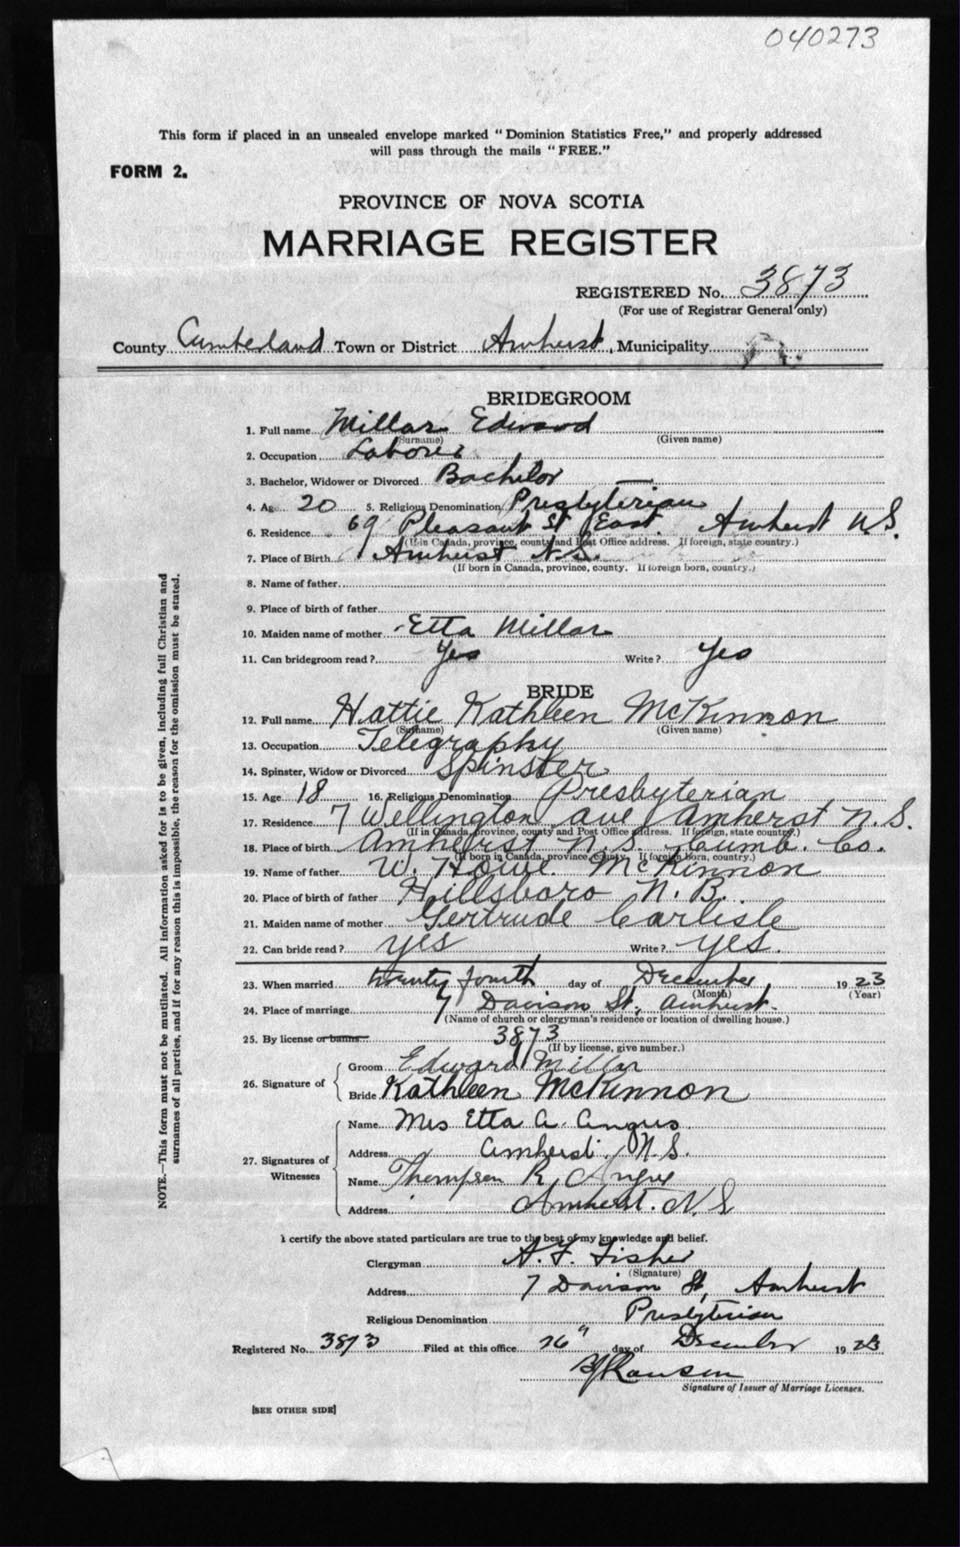 040273
This form if placed in an unsealed envelope marked "Dominion Statistics Free," and properly addressed
will pass through the mails "FREE."
FORM 2.
PROVINCE OF NOVA SCOTIA
MARRIAGE REGISTER
REGISTERED No. 3873
(For use of Registrar General only)
County Cumberland Town or District Amherst, Municipality
BRIDEGROOM
1. Full name Millar Edward
(Surname) (Given name)
2. Occupation Laborer
3. Bachelor, Widower or Divorced Bachelor
4. Age 20 5. Religious Denomination Presbyterian
6. Residence 69 Pleasant St East. Amherst N.S.
(If in Canada, province, county and Post Office address. If foreign, state country.)
7. Place of Birth Amherst N.S.
(If born in Canada, province, county. If foreign born, country.)
8. Name of father
9. Place of birth of father
10. Maiden name of mother Etta Millar
11. Can bridegroom read? Yes Write? Yes
BRIDE
12. Full name Hattie Kathleen McKinnon
(Surname) (Given name)
13. Occupation Telegraphy
14. Spinster, Widow or Divorced Spinster
15. Age 18 16. Religious Denomination Presbyterian
17. Residence 7 Wellington ave Amherst N.S.
(If in Canada, province, county and Post Office address. If foreign, state country.)
18. Place of birth Amherst N.S. Cumb. Co.
(If born in Canada, province, county. If foreign born, country.)
19. Name of father W. Howe. McKinnon
20. Place of birth of father Hillsboro N.B.
21. Maiden name of mother Gertrude Carlisle
22. Can bride read? yes Write? yes.
23. When married twenty fourth day of December 1923
(Month) (Year)
24. Place of marriage 7 Davison St, Amherst.
(Name of church or clergyman's residence or location of dwelling house.)
25. By license or banns 3873
(If by license, give number.)
26. Signature of
Groom Edward Millar
Bride Kathleen McKinnon
27. Signatures of Witnesses
Name Mrs Etta A. Angus
Address Amherst. N.S.
Name Thompson R. Angus
Address Amherst. N.S
I certify the above stated particulars are true to the best of my knowledge and belief.
Clergyman A. F. Fisher
(Signature)
Address 7 Davison St, Amherst
Religious Denomination Presbyterian
Registered No. 3873 Filed at this office 26 day of December 1923
Signature of Issuer of Marriage Licenses.
[SEE OTHER SIDE]
NOTE.—This form must not be mutilated. All information asked for is to be given, including full Christian and
surnames of all parties, and if for any reason this is impossible, the reason for the omission must be stated.